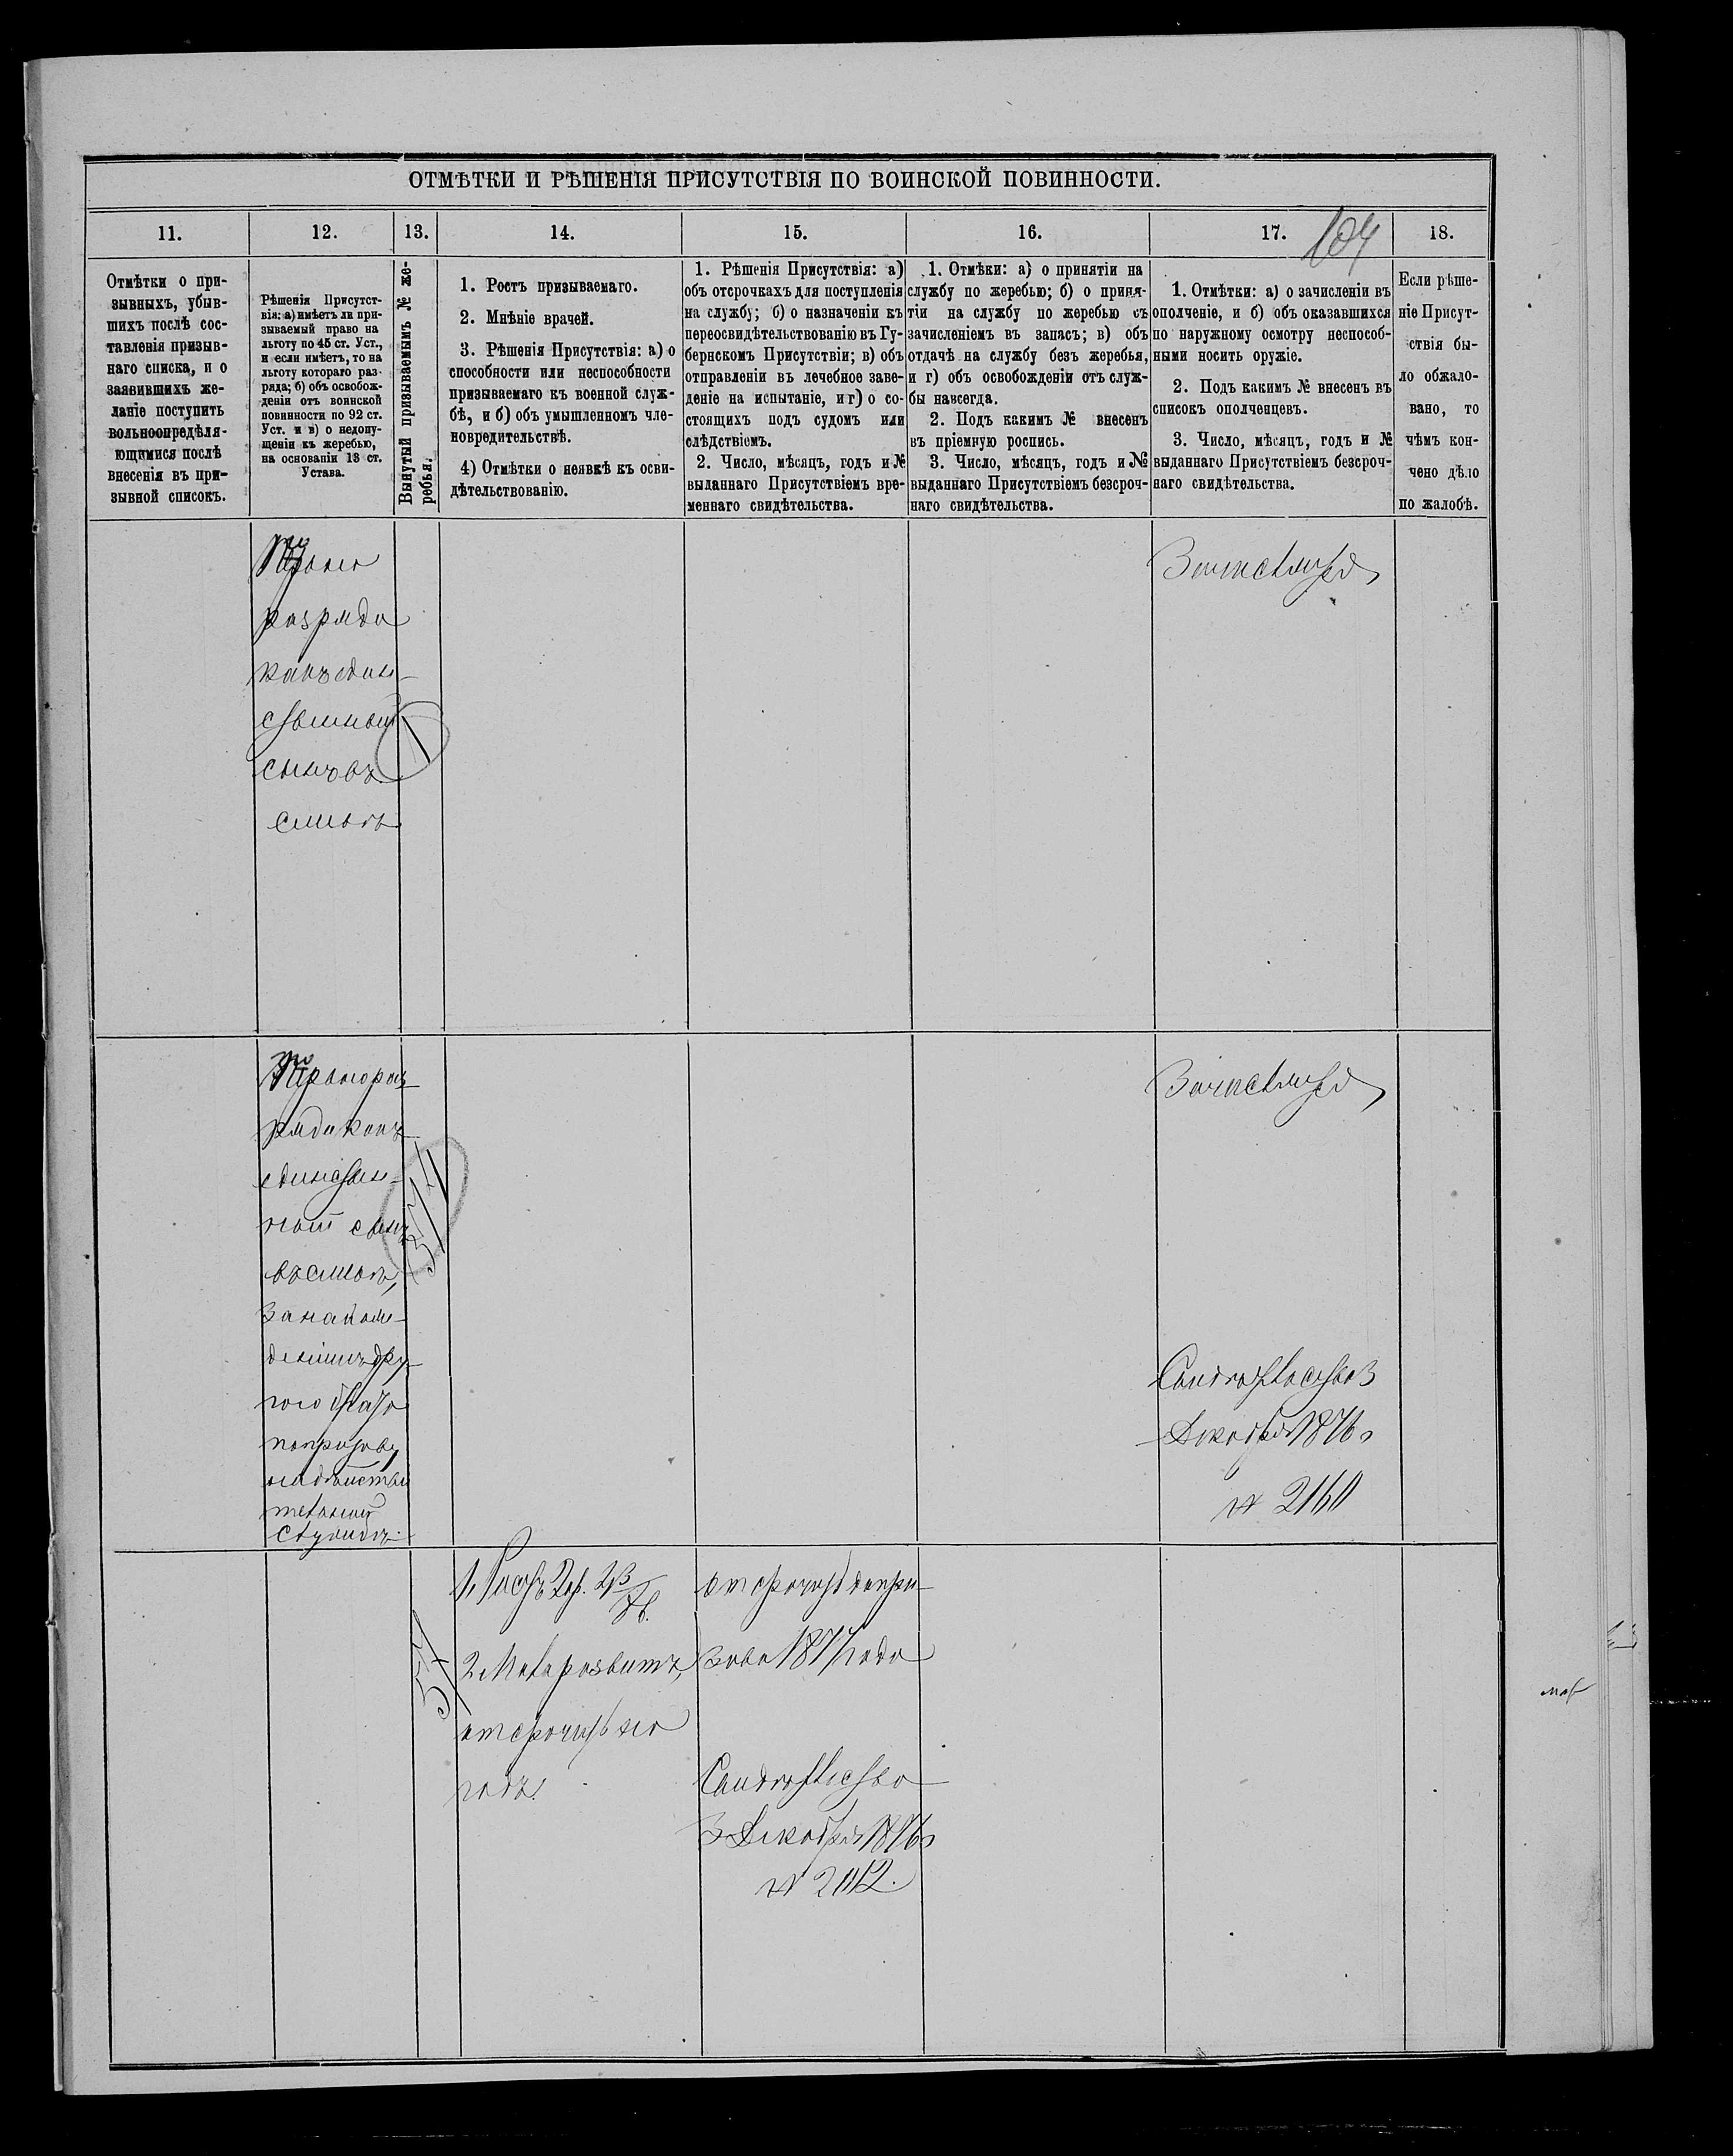 ОТМѢТКИ И РѢШЕНІЯ ПРИСУТСТВІЯ ПО ВОИНСКОЙ ПОВИННОСТИ.
104
11.
12.
13.
14.
15.
16.
17.
18.
Отмѣтки о при-
зывныхъ, убыв-
шихъ послѣ сос-
тавленія призыв-
наго списка, и о
заявившихъ же-
ланіе поступить
вольноопредѣля-
ющимися послѣ
внесенія въ при-
зывной списокъ.
Рѣшенія Присутст-
вія: а) имѣетъ ли при-
зываемый право на
льготу по 45 ст. Уст.,
и если имѣетъ, то на
льготу котораго раз-
ряда; б) объ освобож-
деніи отъ воинской
повинности по 92 ст.
Уст. и в) о недопу-
щеніи къ жеребью,
на основаніи 13 ст.
Устава.
Вынутый призываемымъ № же-
ребья.
1. Ростъ призываемаго.
2. Мнѣніе врачей.
3. Рѣшенія Присутствія: а) о
способности или неспособности
призываемаго къ военной служ-
бѣ, и б) объ умышленномъ чле-
новредительствѣ.
4) Отмѣтки о неявкѣ къ осви-
дѣтельствованію.
1. Рѣшенія Присутствія: а)
объ отсрочкахъ для поступленія
на службу; б) о назначеніи къ
переосвидѣтельствованію въ Гу-
бернскомъ Присутствіи; в) объ
отправленіи въ лечебное заве-
деніе на испытаніе, и г) о со-
стоящихъ подъ судомъ или
слѣдствіемъ.
2. Число, мѣсяцъ, годъ и №
выданнаго Присутствіемъ вре-
меннаго свидѣтельства.
1. Отмѣки: а) о принятіи на
службу по жеребью; б) о приня-
тіи на службу по жеребью съ
зачисленіемъ въ запасъ; в) объ
отдачѣ на службу безъ жеребья,
и г) объ освобожденіи отъ служ-
бы навсегда.
2. Подъ какимъ № внесенъ
въ пріемную роспись.
3. Число, мѣсяцъ, годъ и №
выданнаго Присутствіемъ безсроч-
наго свидѣтельства.
1. Отмѣтки: а) о зачисленіи въ
ополченіе, и б) объ оказавшихся
по наружному осмотру неспособ-
ными носить оружіе.
2. Подъ какимъ № внесенъ въ
списокъ ополченцевъ.
3. Число, мѣсяцъ, годъ и №
выданнаго Присутствіемъ безсроч-
наго свидѣтельства.
Если рѣше-
ніе Присут-
ствія бы-
ло обжало-
вано, то
чѣмъ кон-
чено дѣло
по жалобѣ.
разряда
какъ един-
ственный
сынъ въ
семьѣ
Зачислить
ряда какъ
единствен-
ный сынъ
въ семьѣ,
за нахож-
деніемъ дру-
гого брата
по призыву
на дѣйстви
тельной
службѣ.
Зачислить
Свидѣтельство 3
Декабря 1876 г
№ 2160
57
1, Ростъ 2 ар. 2 3/8 в.
2 Мало развитъ,
отсрочить на
годъ.
отсрочить до при-
зыва 1877 года
Свидѣтельство
3 Декабря 1876 г
№ 2012.